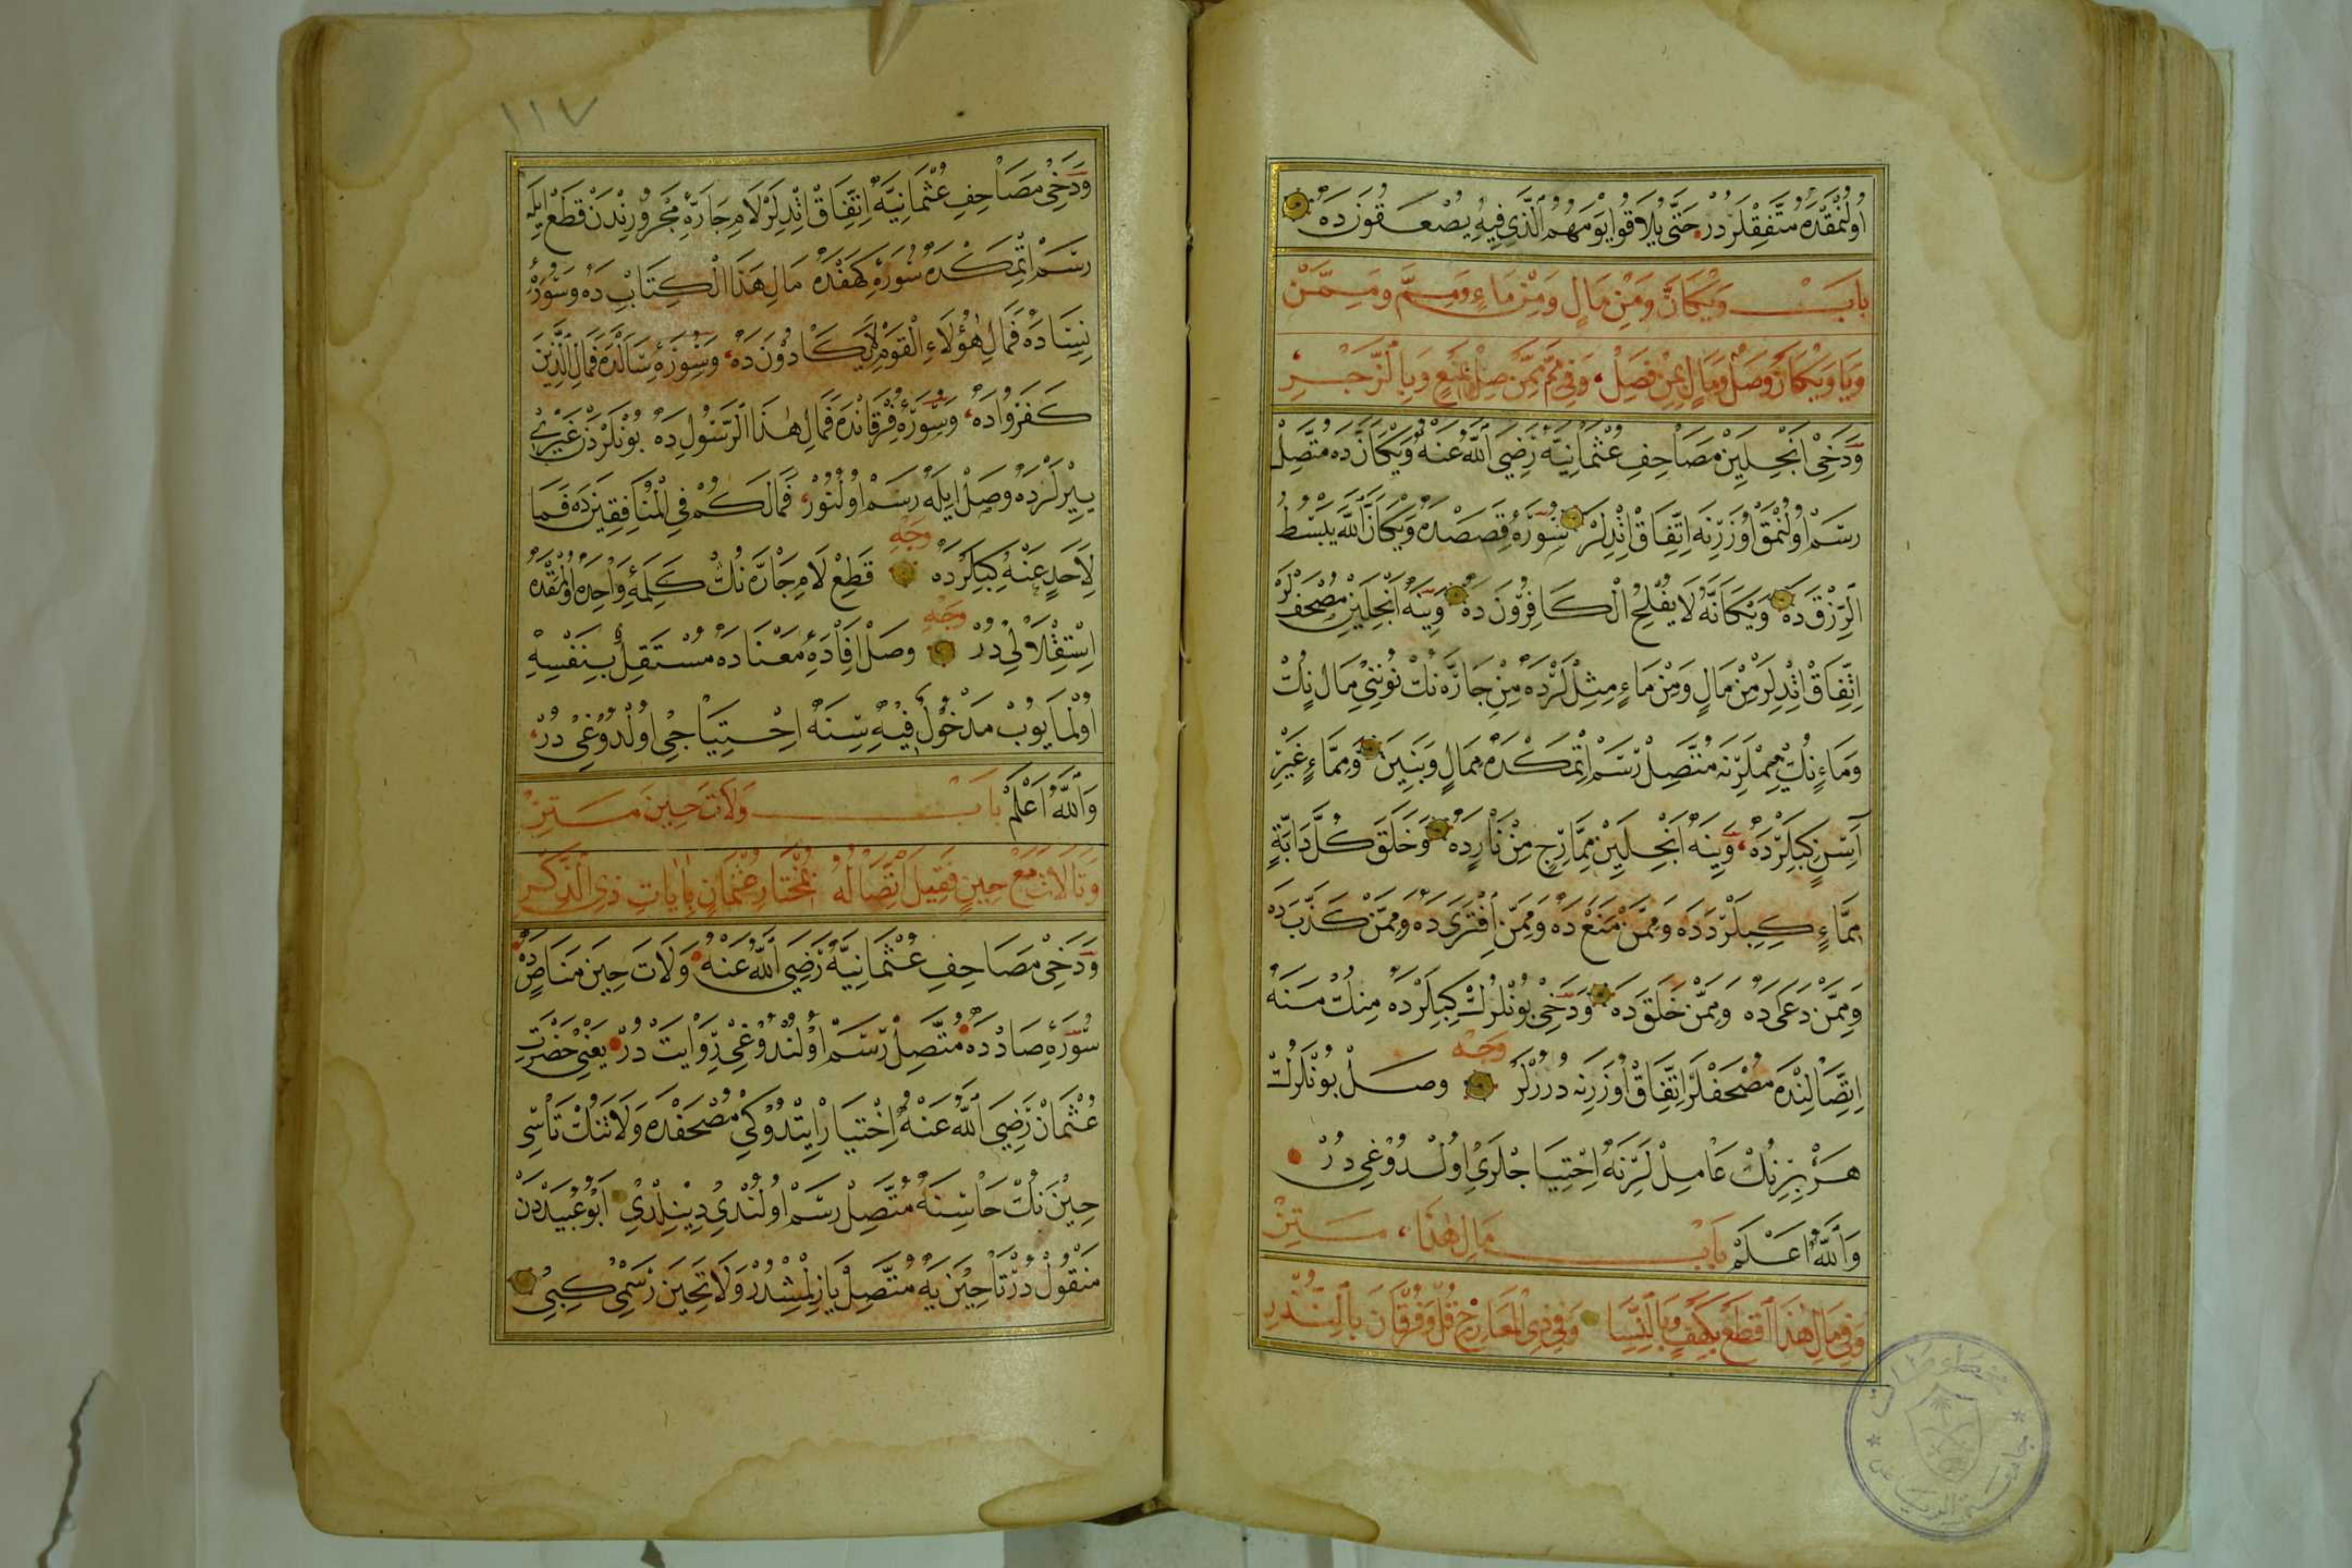 اولنمقده متفقلردر حتى يلاقوا يومهم الذي فيه يصعقون ده
باب ويكأن ومن مال ومن ماء ومم وممن
ويا ويكأن وصل ومال بمن فصل وفي مم ممن صل بمنع وبالزجر
ودخى انجلين مصاحف عثمانيه رضي الله عنه ويكأن ده متصل
رسم اولنمق اوزرنه اتفاق اتديلر سورهٔ قصصده ويكأن الله يبسط
الرزق ده ويكأنه لا يفلح الكافرون ده وينه انجلين مصحفلر
اتفاق اتديلر من مال ومن ماء مثللرده من جاره نك نوننى مال نك
وماء نك ميملرنه متصل رسم اتمكده ممال وبنين ومماء غير
آسن كبيلرده وينه انجلين ممارج من نارده وخلق كل دابة
مماء كبيلرده وممن منع ده وممن افترى ده وممن كذب ده
وممن دعى ده وممن خلق ده ودخى بونلرك كبيلرده منك منه
اتصالنده مصحفلر اتفاق اوزرنه دررلر وجه وصل بونلرك
هر برينك عاملرينه احتياجلرى اولدوغى در
والله اعلم باب مال هذا ستين
وفي مال هذا اقطع بكهف وبالنسا وفي ذي المعارج قل وفرقان بالندر
١١٧
ودخى مصاحف عثمانيه اتفاق اتديلر لام جارهٔ مجرورندن قطع ايله
رسم اتمكده سورهٔ كهفده مال هذا الكتاب ده وسورهٔ
نساده فمال هؤلاء القوم لا يكادون ده وسورهٔ سألده فمال الذين
كفروا ده وسورهٔ فرقانده فمال هذا الرسول ده بونلردن غيرى
يرلرده وصل ايله رسم اولنور فمالكم في المنافقين ده فما
لأحد عنه كبيلرده وجه قطع لام جاره نك كلمهٔ واحده اولمقده
استقلالى در وجه وصل افادهٔ معناده مستقل بنفسه
اولمايوب مدخول فيه سنه احتياجى اولدوغى در
والله اعلم باب ولات حين ستين
وتا لات مع حين فقيل اتصاله بمختار عثمان بايات ذي الذكر
ودخى مصاحف عثمانيه رضي الله عنه ولات حين مناص ده
سورهٔ صادده متصل رسم اولندوغى روايت در يعني حضرت
عثمان رضي الله عنه اختيار ايتدوكى مصحفده ولاتنك تاسى
حين نك حاسنه متصل رسم اولندى دينلدى ابو عبيددن
منقول در تا حين يه متصل يازلمشدر ولا تحين رسمى كبى